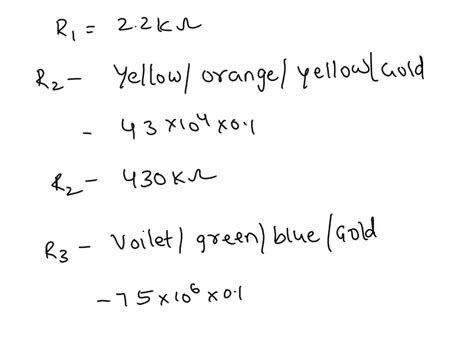 R₁ = 2.2KΩ
R₂ - Yellow/ orange/ yellow/ Gold
- 43 ×10⁴ ×0.1
R₂ - 430KΩ
R₃ - Voilet/ green/ blue/ Gold
- 75 ×10⁶ ×0.1